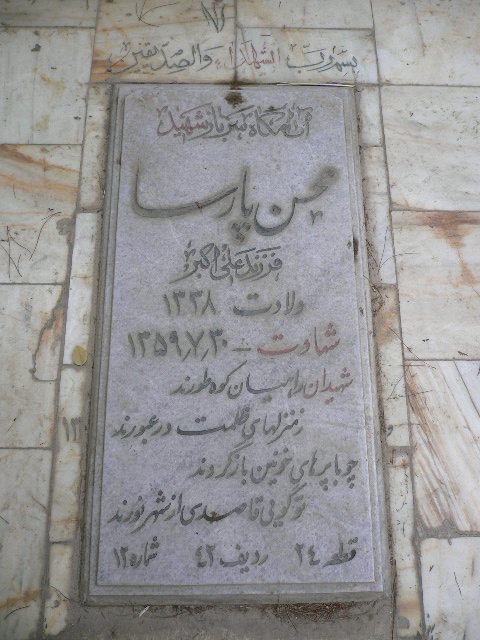 بسم رب الشهدا والصدیقین
آرامگاه سرباز شهید
محسن پارسا
فرزند علی اکبر
ولادت ۱۳۳۸
شهادت - ۱۳۵۹٫۷٫۳۰
شهیدان راهیان کوه طورند
زمنزلهای ظلمت در عبورند
چو با پرهای خونین بازگردند
تو گویی قاصدی از شهر نورند
قطعه ۲۴ ردیف ۴۲ شماره ۱۲